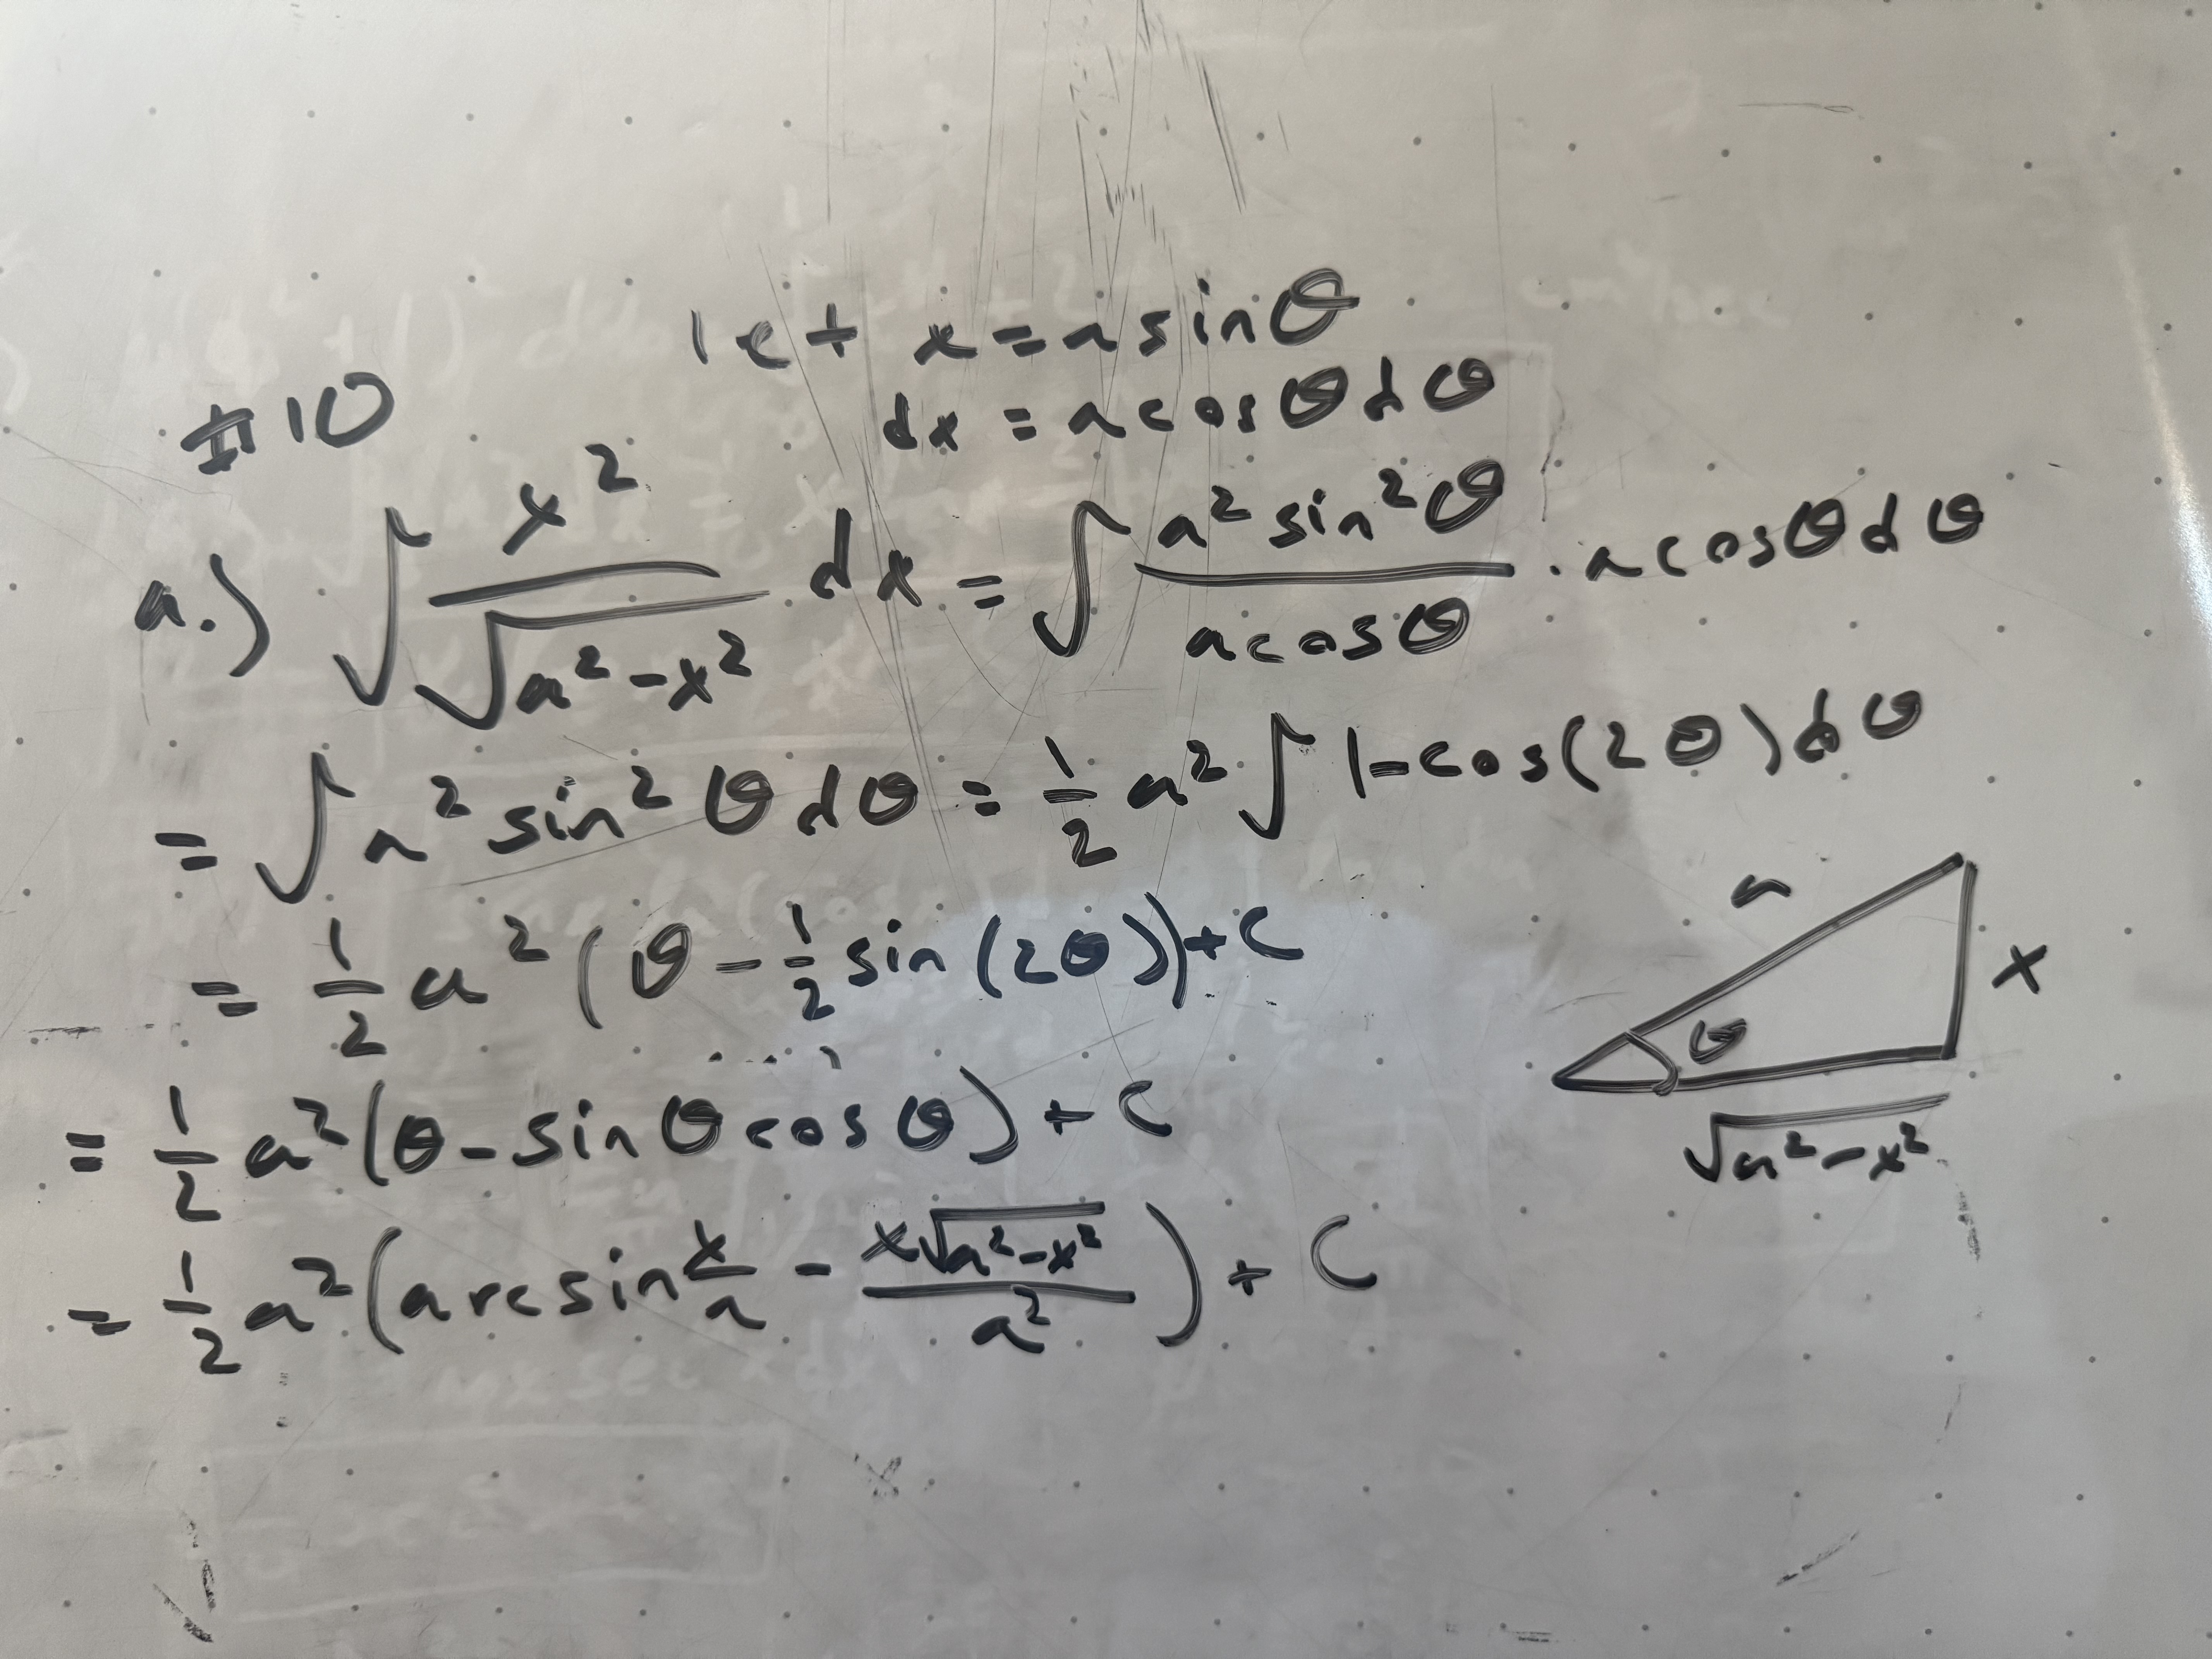 let x = a sinθ
#10
dx = a cosθ dθ
a.) ∫ x² / √(a² - x²) dx = ∫ a² sin² θ / a cosθ · a cosθ dθ
= ∫ a² sin² θ dθ = 1/2 a² ∫ 1 - cos(2θ) dθ
= 1/2 a² (θ - 1/2 sin(2θ)) + C
a
x
θ
√(a² - x²)
= 1/2 a² (θ - sin θ cos θ) + C
= 1/2 a² (arcsin x/a - x√(a² - x²) / a²) + C